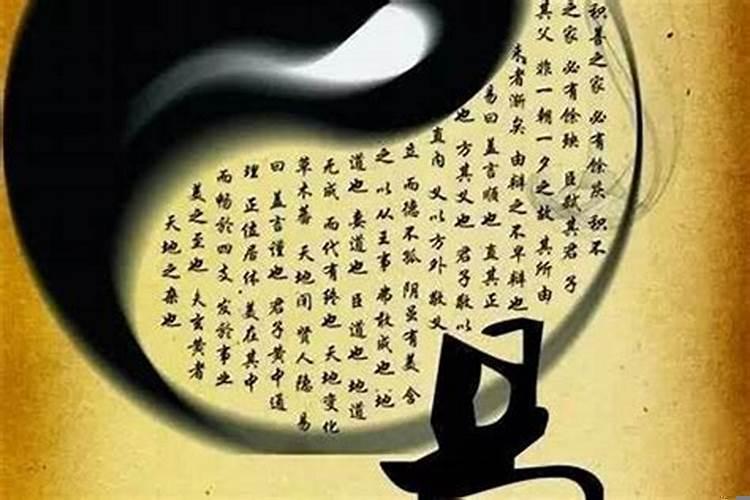 积善之家 必有餘慶 积不
之家 必有餘殃 臣弑其君 子
其父 非一朝一夕之故 其所由
来者渐矣 由辩之不早辩也
易曰 盖言順也 直其正
也 方其义也 君子敬以
直内 义以方外 敬义
立 而德不孤 阴虽有美 含
之 以从王事 弗敢成也 地
道也 妻道也 臣道也 地道
无成 而代有终也 天地变化
草木蕃 天地闭 贤人隐 易
曰 盖言謹也 君子黄中通
理 正位居体 美在其中
而畅於四支 发於事业
美之至也 夫玄黄者
天地之杂也